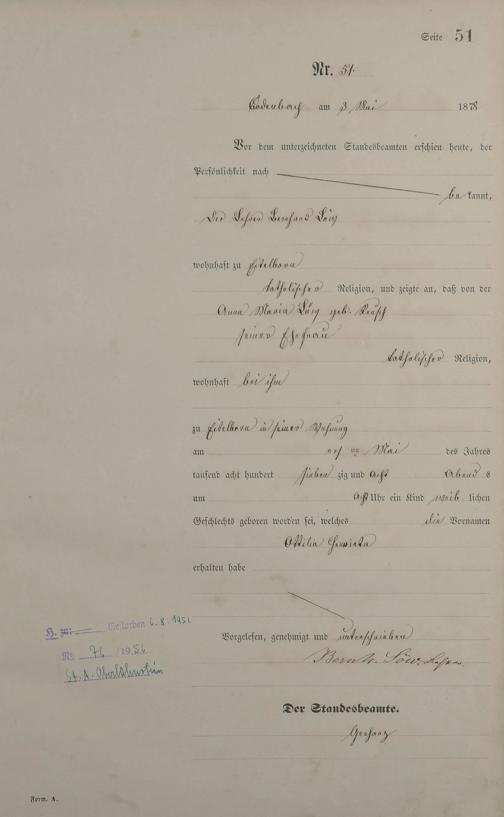 Seite 51
Nr. 51.
Cadenbach am 3 Mai 1878
Vor dem unterzeichneten Standesbeamten erschien heute, der
Persönlichkeit nach
be kannt,
Der Lehrer Bernhard Löw
wohnhaft zu Eitelborn
katholischer Religion, und zeigte an, daß von der
Anna Maria Löw geb.
seiner Ehefrau
katholischer Religion,
wohnhaft bei ihm
zu Eitelborn in seiner Wohnung
am Mai des Jahres
tausend acht hundert sieben zig und acht Abend s
um acht Uhr ein Kind weib lichen
Geschlechts geboren worden sei, welches die Vornamen
Ottilia
erhalten habe
Vorgelesen, genehmigt und unterschrieben
Bernh. Löw, Lehrer.
Der Standesbeamte.
H. Gestorben 6.8.1956
Nr. 76 /1956
St. A. Oberlahnstein
Form. A.